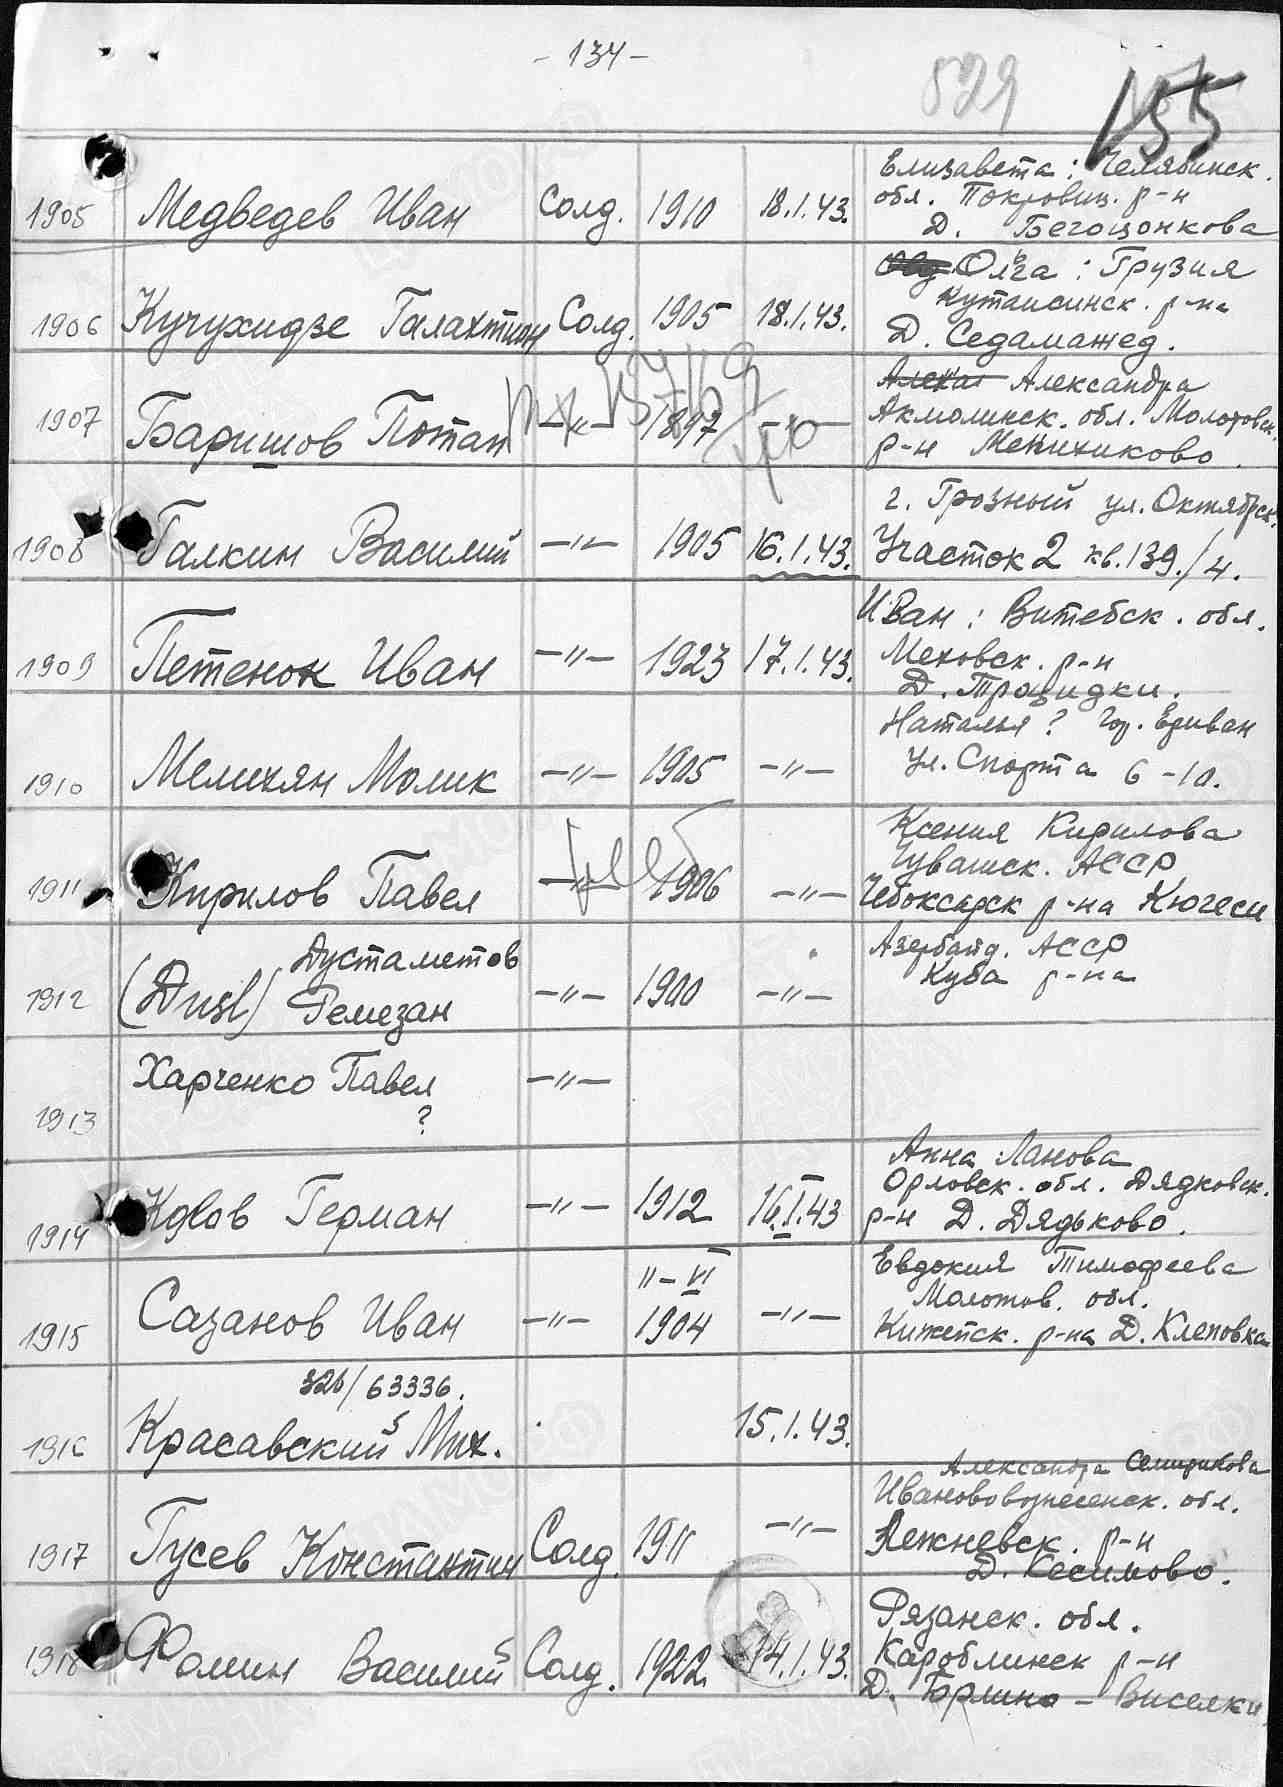 - 134 -
829
155
1905 Медведев Иван Солд. 1910 18.1.43. Елизавета: Челябинск.
обл. Покровиц. р-н
Д. Бегоцонкова
1906 Кучухидзе Галахтион Солд. 1905 18.1.43. Ольга: Грузия
Кутаисинск. р-на
Д. Седаматед.
1907 Баришов Потап —"— 1897 —"— Александра
Акмолинск. обл. Молотовск.
р-н Меншиково.
1908 Галкин Василий —"— 1905 16.1.43. г. Грозный ул. Октябрск.
Участок 2 кв. 139./4.
1909 Петенок Иван —"— 1923 17.1.43. Иван: Витебск. обл.
Меховск. р-н
Д.
1910 Меликян Молик —"— 1905 —"— Наталья? Гор. Ериван
Ул. Спорта 6-10.
1911 Кирилов Павел —"— 1906 —"— Ксения Кирилова
Чувашск. АССР
Чебоксарск р-на Кюгеси
1912 (Dusl) Дустаметов
Ремезан —"— 1900 —"— Азербайд. АССР
Куба р-на
1913 Харченко Павел —"—
?
1914 Герман —"— 1912 16.I.43 Анна Панова
Орловск. обл. Дядковск.
р-н Д. Дядьково.
1915 Сазанов Иван —"— 11-VI
1904 —"— Евдокия Тимофеева
Молотов. обл.
р-на Д. Клеповка
326/63336.
1916 Красавский Мих. 15.1.43.
1917 Гусев Константин Солд. 1911 —"— Александра
Иванововознесенск. обл.
Лежневск. р-н
Д. Кесимово.
1918 Фомин Василий Солд. 1922 14.1.43. Рязанск. обл.
Кароблинск р-н
Д. - Виселки